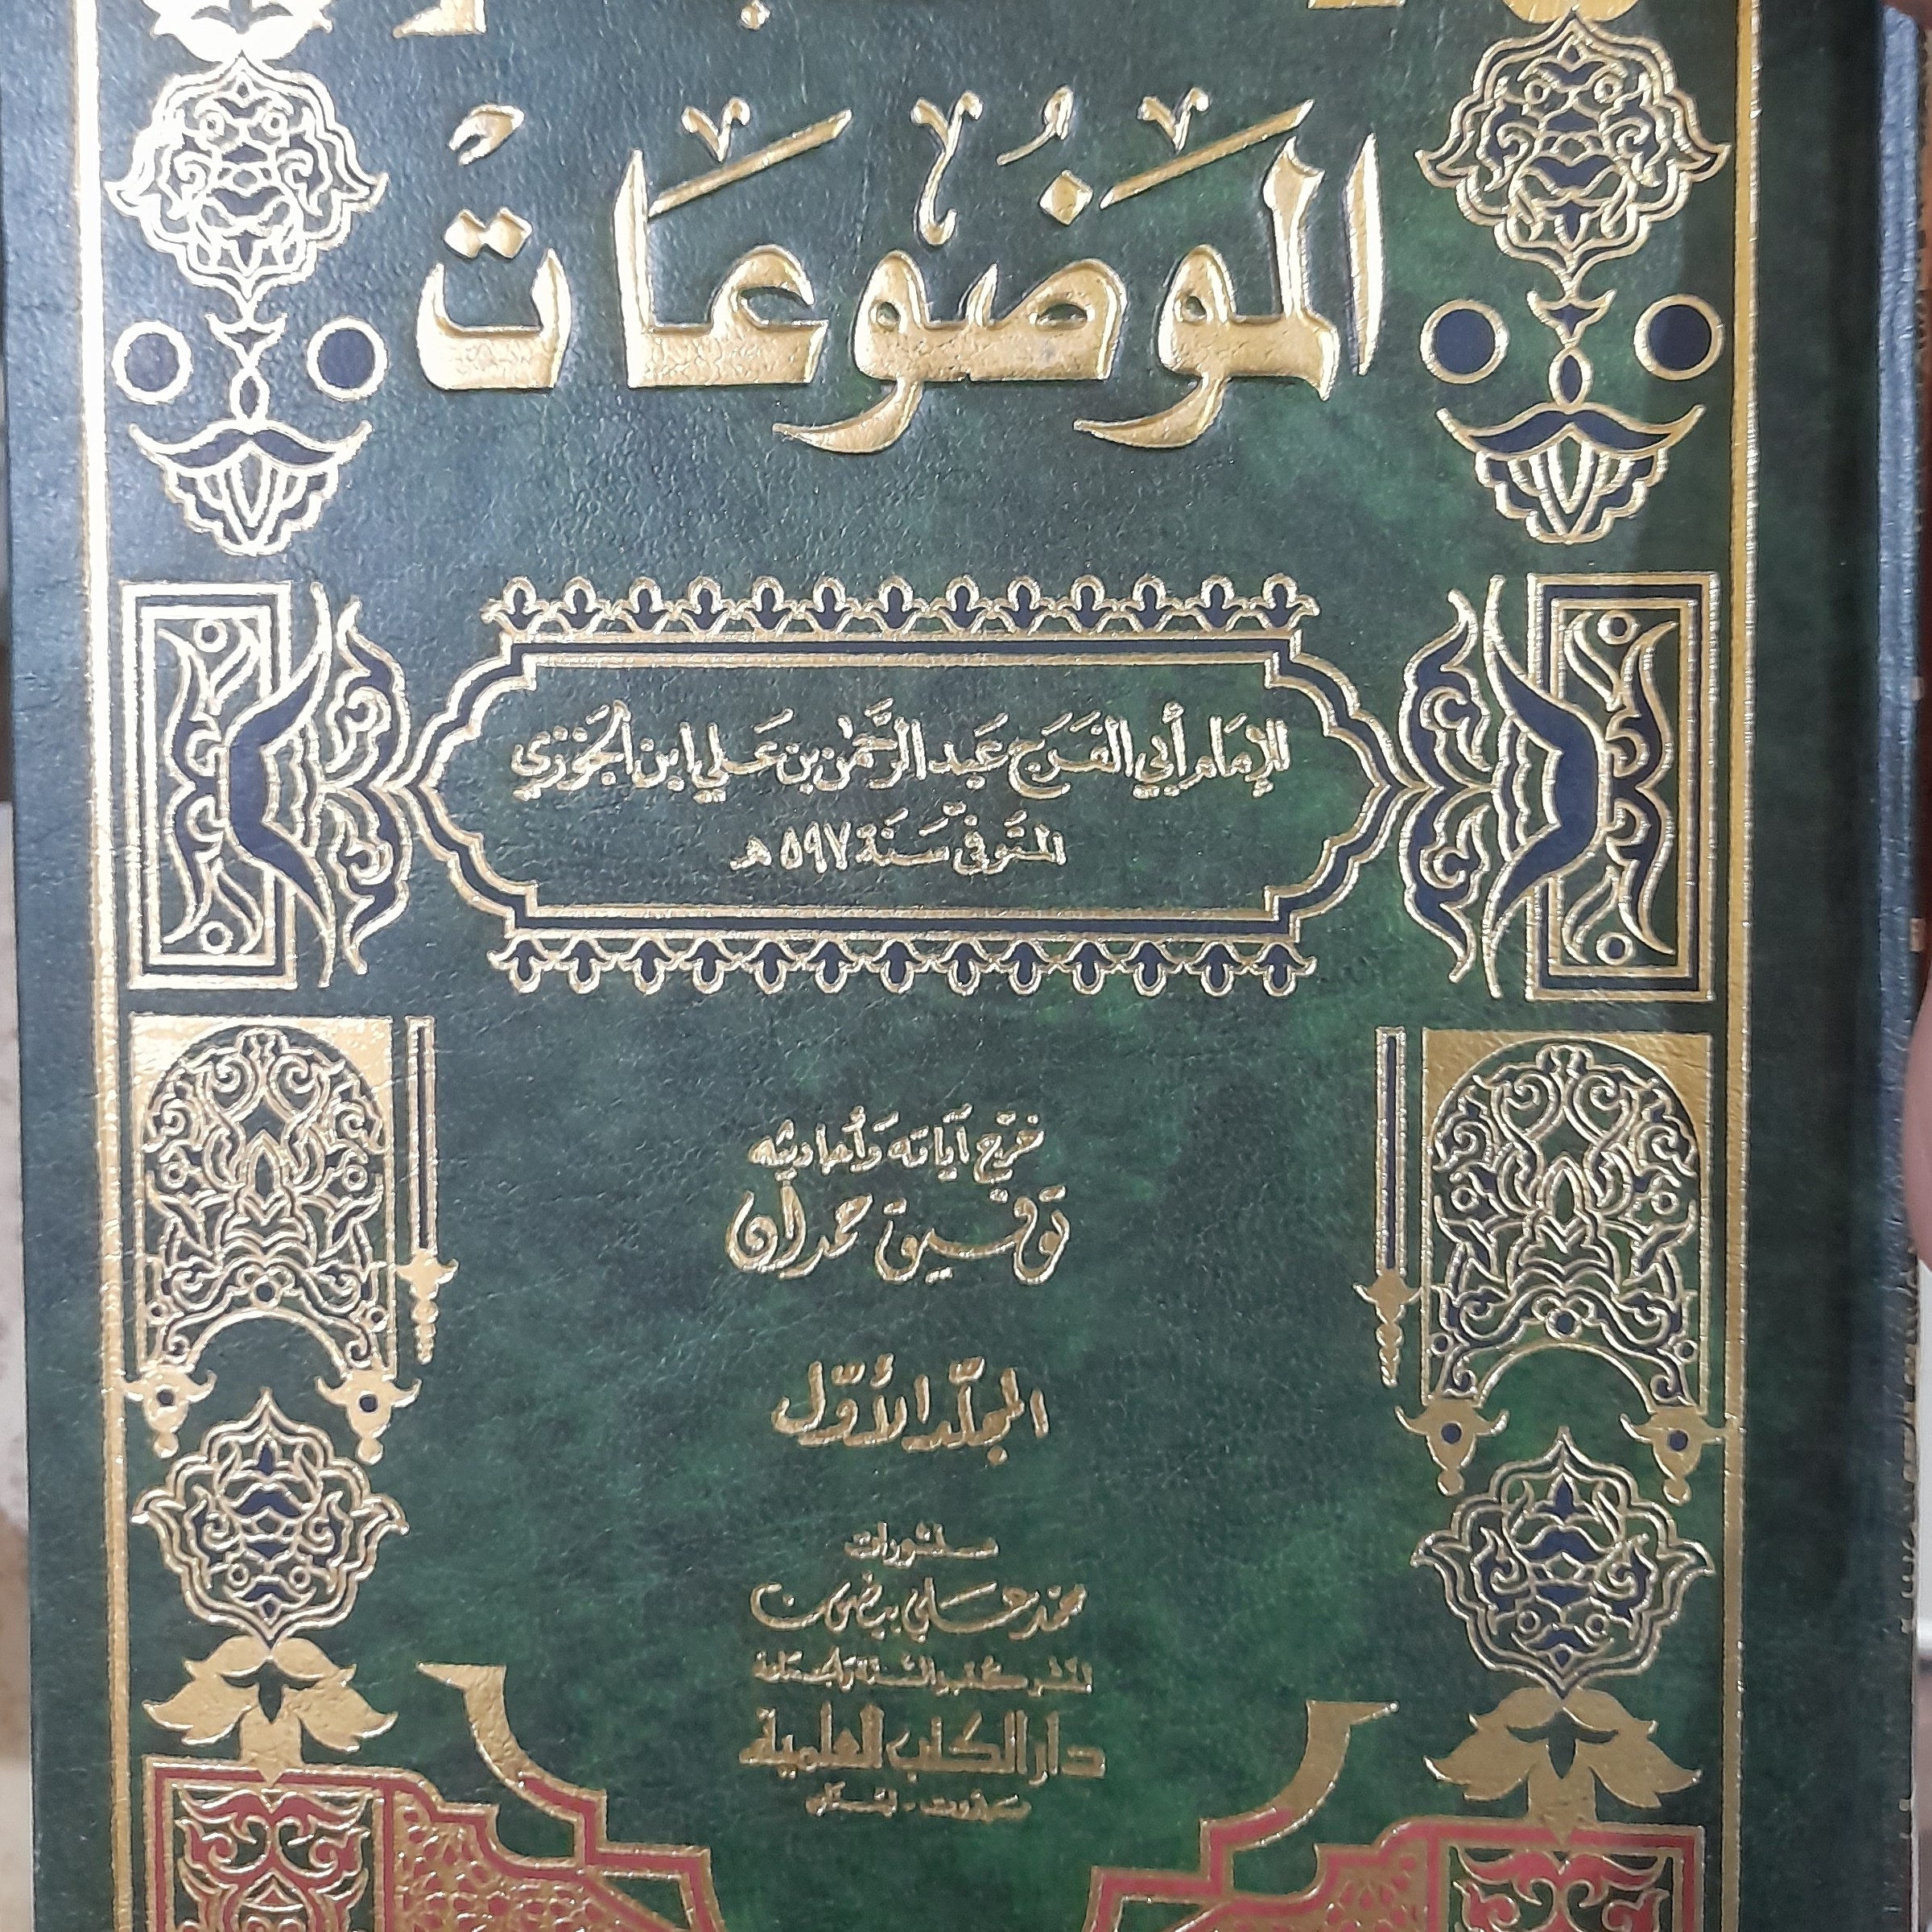 المَوَضُوعَات
للإمَام أبي الفَرَج عَبد الرَّحمٰن بن عَلي ابن الجَوزي
المتَوفىّ سَنَة ٥٩٧ هـ
خرّج آياته وَأحاديثه
توفيق حمدان
المجلّد الأوّل
منشورات
محمد علي بيضون
لنشر كتب السنة والجماعة
دار الكتب العلمية
بيروت - لبنان